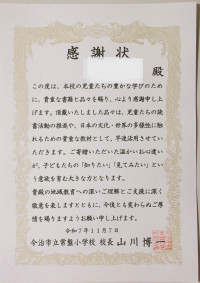 感謝状
殿
この度は、本校の児童たちの豊かな学びのため
に、貴重な書籍と品々を賜り、心より感謝申し上
げます。頂戴いたしました品々は、児童たちの読
書活動の推進や、日本の文化・世界の多様性に触
れるための貴重な教材として、早速活用させてい
ただきます。ご寄贈いただいた温かいお心遣い
が、子どもたちの「知りたい」「見てみたい」とい
う意欲を育む大きな力となります。
貴殿の地域教育への深いご理解とご支援に深く
敬意を表しますとともに、今後とも変わらぬご厚
情を賜りますようお願い申し上げます。
令和7年11月7日
今治市立常盤小学校 校長 山川博一